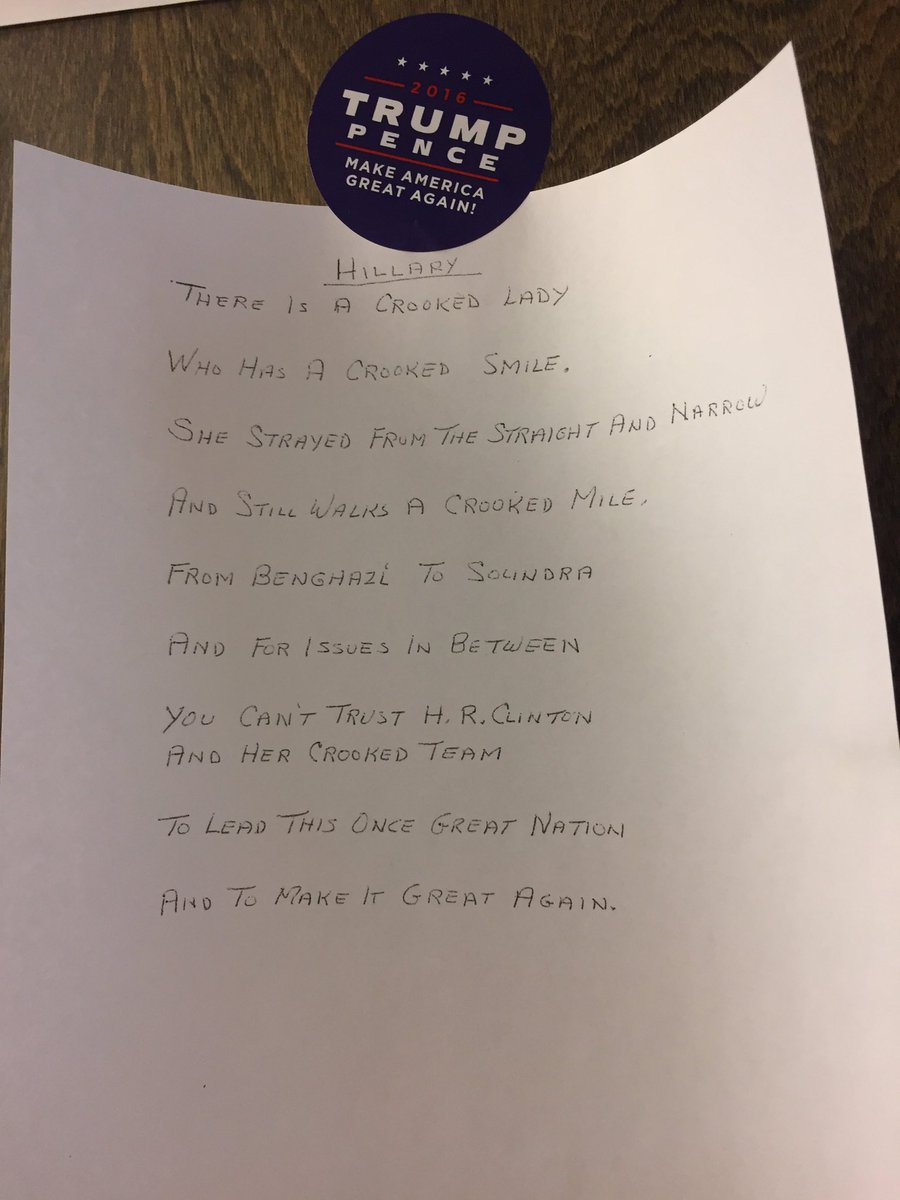 2016
TRUMP
PENCE
MAKE AMERICA
GREAT AGAIN!
HILLARY
THERE IS A CROOKED LADY
WHO HAS A CROOKED SMILE.
SHE STRAYED FROM THE STRAIGHT AND NARROW
AND STILL WALKS A CROOKED MILE.
FROM BENGHAZI TO SOLINDRA
AND FOR ISSUES IN BETWEEN
YOU CAN'T TRUST H. R. CLINTON
AND HER CROOKED TEAM
TO LEAD THIS ONCE GREAT NATION
AND TO MAKE IT GREAT AGAIN.